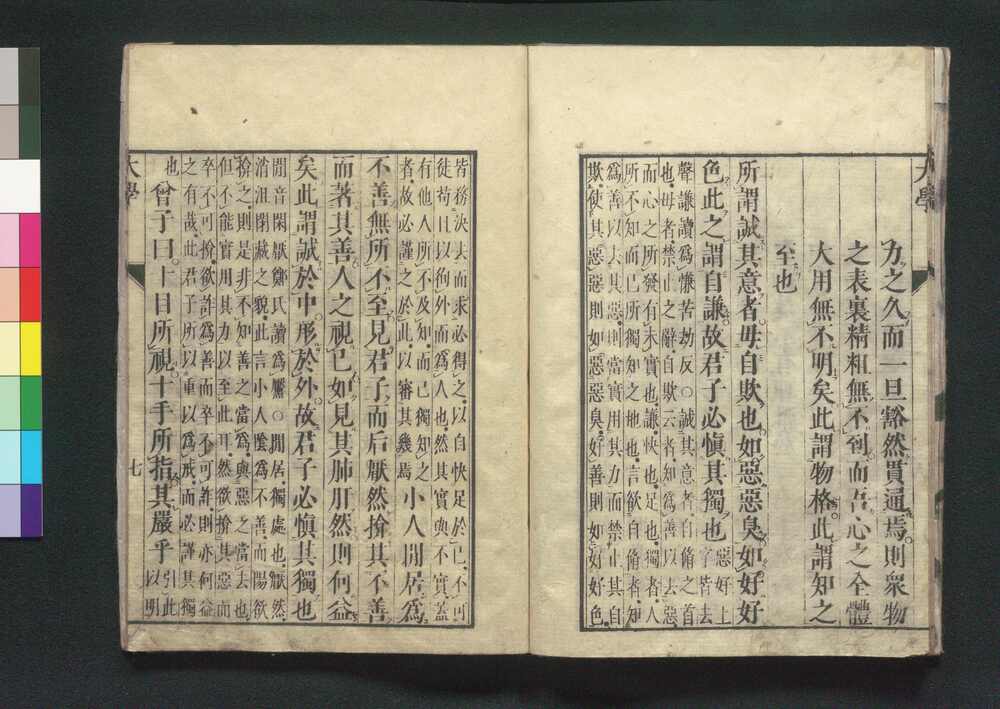 大學
力之久而一旦豁然貫通焉則衆物
之表裏精粗無不到而吾心之全體
大用無不明矣此謂物格此謂知之
至也
所謂誠其意者毋自欺也如惡惡臭如好好
色此之謂自謙故君子必愼其獨也
惡好上
字皆去
聲謙讀爲慊苦劫反○誠其意者自脩之首
也毋者禁止之辭自欺云者知爲善以去惡
而心之所發有未實也謙快也足也獨者人
所不知而己所獨知之地也言欲自脩者知
爲善以去其惡則當實用其力而禁止其自
欺使其惡惡則如惡惡臭好善則如好好色
皆務決去而求必得之以自快足於己不可
徒苟且以狥外而爲人也然其實與不實蓋
有他人所不及知而己獨知之
者故必謹之於此以審其幾焉
小人閒居爲
不善無所不至見君子而后厭然揜其不善
而著其善人之視己如見其肺肝然則何益
矣此謂誠於中形於外故君子必愼其獨也
閒音閑厭鄭氏讀爲黶○閒居獨處也厭然
消沮閉藏之貌此言小人陰爲不善而陽欲
揜之則是非不知善之當爲與惡之當去也
但不能實用其力以至此耳然欲揜其惡而
卒不可揜欲詐爲善而卒不可詐則亦何益
之有哉此君子所以重以爲戒而必謹其獨
也
曾子曰十目所視十手所指其嚴乎
引此
以明
大學
七